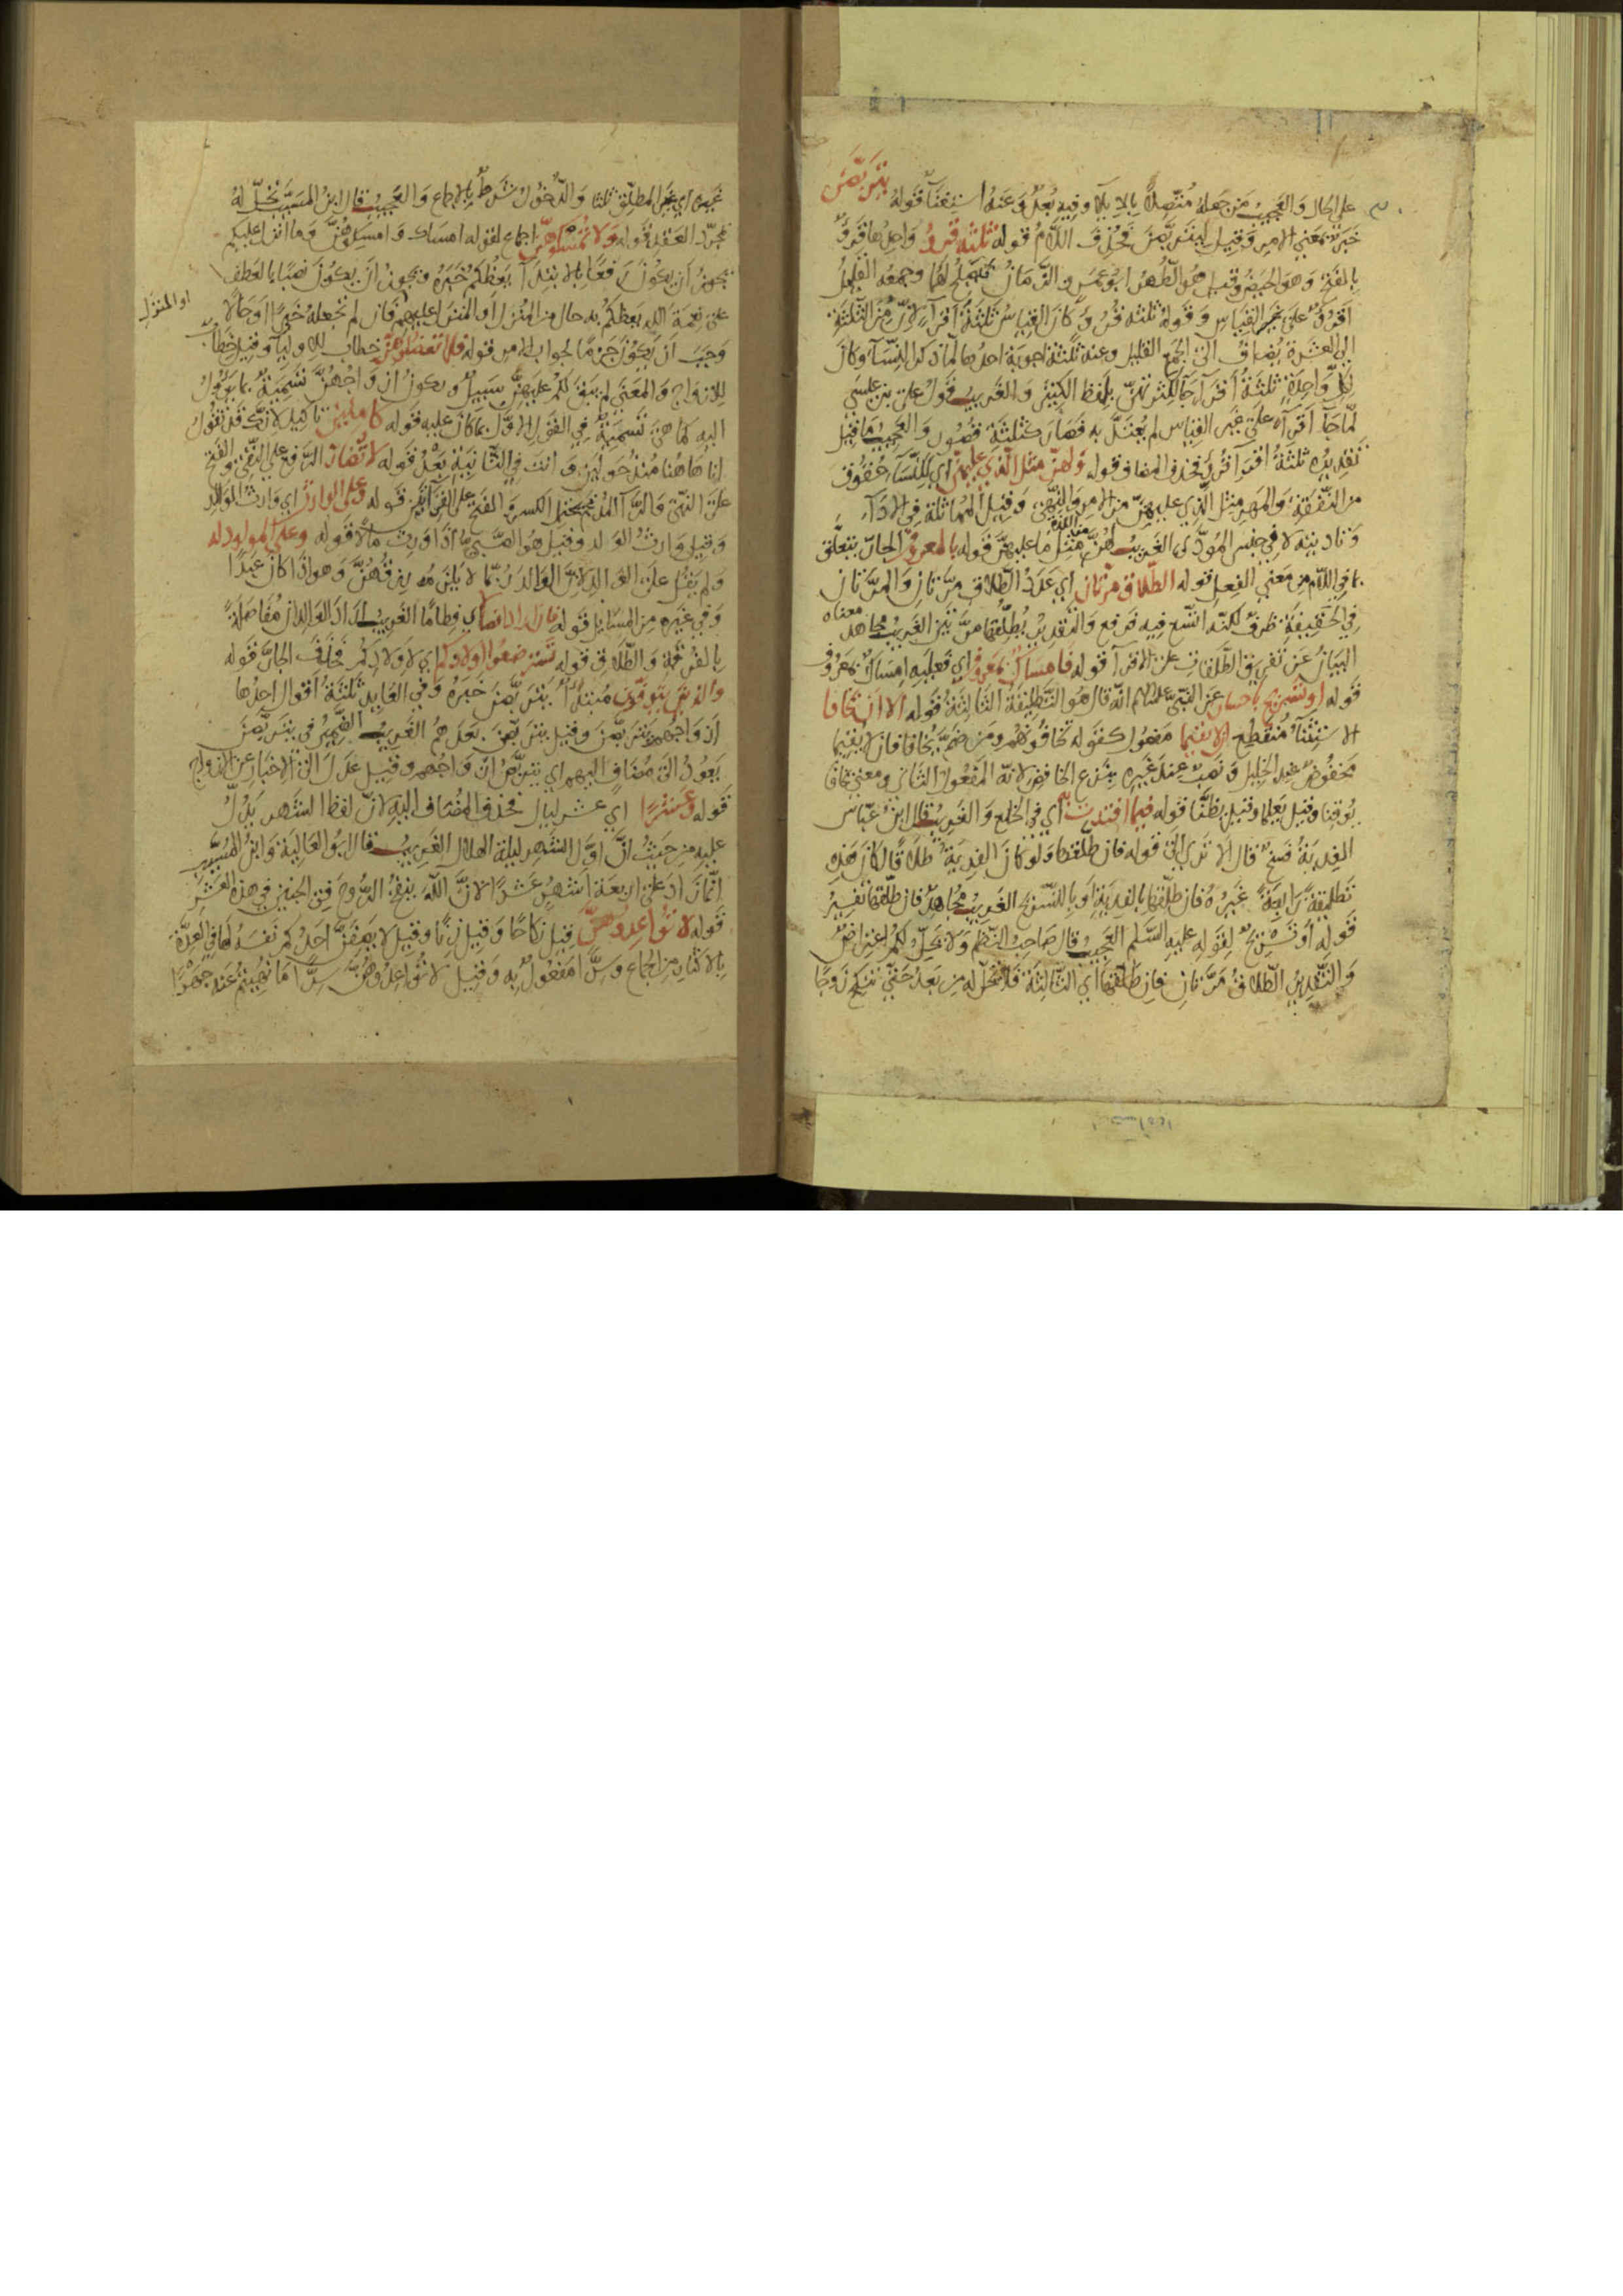 على الحال والعجيب من جعله متصلا بالايلا وفيه بعد وعنه استغنآ قوله يتربصن
خبر بمعنى الامر وقيل ليتربصن فحذف اللام قوله ثلثة قروء واحدها قرء
بالفتح وهو الحيض وقيل هو الطهر ابو عمرو الزمان يصلح لهما وجمعه القليل
اقرؤ على غير القياس وقوله ثلثة قروء وكان القياس ثلثة اقرآء لان من الثلثة
الى العشرة يضاف الى الجمع القليل وعنه ثلثة اجوبة احدها لما ذكر النسآ وكان
لكل واحدة ثلثة اقرآ جآ لكثرتهن بلفظ الكثير والغريب قول علي بن عيسى
لما جآ اقرآء على غير القياس لم يعتد به فصار كثلثة فصول والعجيب ما قيل
تقديره ثلثة اقرا قروء فحذف المضاف قوله ولهن مثل الذي عليهن اي للنسآ حقوق
من النفقة والمهر مثل الذي عليهن من الامر والنهي وقيل المماثلة في الادآء
وتأديته لا في جنس المودى الغريب لهن من الله مثل ما عليهن قوله بالمعروف الجار يتعلق
بما في اللام من معنى الفعل قوله الطلاق مرتان اي عدد الطلاق مرتان والمرتان
في الحقيقة ظرف لكنه اتسع فيه فرفع والتقدير يطلقها مرتين الغريب مجاهد معناه
البيان عن تفريق الطلقات على الاقرآ قوله فامساك بمعروف اي فعليه امساك بمعروف
قوله او تسريح باحسان عن النبي عليه السلم انه قال هو التطليقة الثالثة قوله الا ان يخافا
الاستثنآ منقطع الا يقيما مفعول كقوله تخافونهم ومن ضم يخافا فان لا يقيما
مخفوض عند الخليل ونصب عند غيره بنزع الخافض لانه المفعول الثاني ومعنى يخافا
يوقنا وقيل يعلما وقيل يظنا قوله فيما افتدت به اي في الخلع والغريب قال ابن عباس
الفدية فسخ قال الا ترى الى قوله فان طلقها ولو كان الفدية طلاقا لكان هذه
تطليقة رابعة غيره فان طلقها بالفدية او بالتسريح الغريب مجاهد فان طلقها تفسير
قوله او تسريح لقوله عليه السلم العجيب قال صاحب النظم ولا يحل لكم اعتراض
والتقدير الطلاق مرتان فان طلقها اي الثالثة فلا تحل له من بعد حتى تنكح زوجا
غيره اي غير المطلق ثلثا والدخول شرط بالاجماع والعجيب قال ابن المسيب تحل له
بمجرد العقد قوله ولا تمسكوهن اجماع لقوله امساك وامسكوهن وما انزل عليكم
يجوز ان يكون رفعا بالابتدآ يعظكم خبره ويجوز ان يكون نصبا بالعطف
على نعمة الله يعظكم به حال من المنزل او المنزل عليهم فان لم تجعله خبرا او حالا
او المنزل
وجب ان يكون جزما لجواب الامر قوله فلا تعضلوهن خطاب للاوليآ وقيل خطاب
للازواج والمعنى لم يبق لكم عليهن سبيل ويكون ازواجهن تسمية بما يؤول
اليه كما هي تسمية في القول الاول بما كان عليه قوله كاملين تاكيد لانك قد تقول
انا هاهنا منذ حولين وانت في الثانية بعد قوله لا تضار الرفع على النفي والفتح
على النهي والرآ المدغم يحتمل الكسر والفتح على القراتين قوله وعلى الوارث اي وارث الوالد
وقيل وارث الولد وقيل هو الصبي اذا ورث مالا قوله وعلى المولود له
ولم يقل على الوالد لان الوالد ربما لا يلزمه رزقهن وهو اذا كان عبدا
وفي غيره من المسايل قوله فان ارادا فصالا اي فطاما الغريب اراد الوالدان مفاصلة
بالفرقة والطلاق قوله تسترضعوا اولادكم اي لاولادكم فحذف الجار قوله
والذين يتوفون مبتدأ يتربصن خبره وفي العايد ثلثة اقوال احدها
ازواجهم يتربصن وقيل يتربصن بعدهم الغريب الضمير في يتربصن
يعود الى مضاف اليهم اي يتربصن ازواجهم وقيل عدل الى الاخبار عن الازواج
قوله وعشرا اي عشر ليال فحذف المضاف اليه لان لفظ الشهر يدل
عليه من حيث ان اول الشهر ليلة الهلال الغريب قال ابو العالية وابن المسيب
انما زاد على اربعة اشهر عشرا لان الله ينفخ الروح في الجنين في هذه العشر
قوله لا تواعدوهن قيل نكاحا وقيل زنا وقيل لا يصفن احدكم نفسه لها في العدة
بالاكثار من الجماع وسرا مفعول به وقيل لا تواعدوهن سرا ما نهيتم عنه جهرا